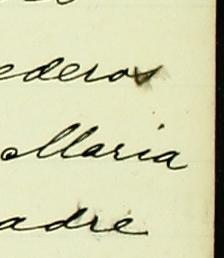 ederos
Maria
adre